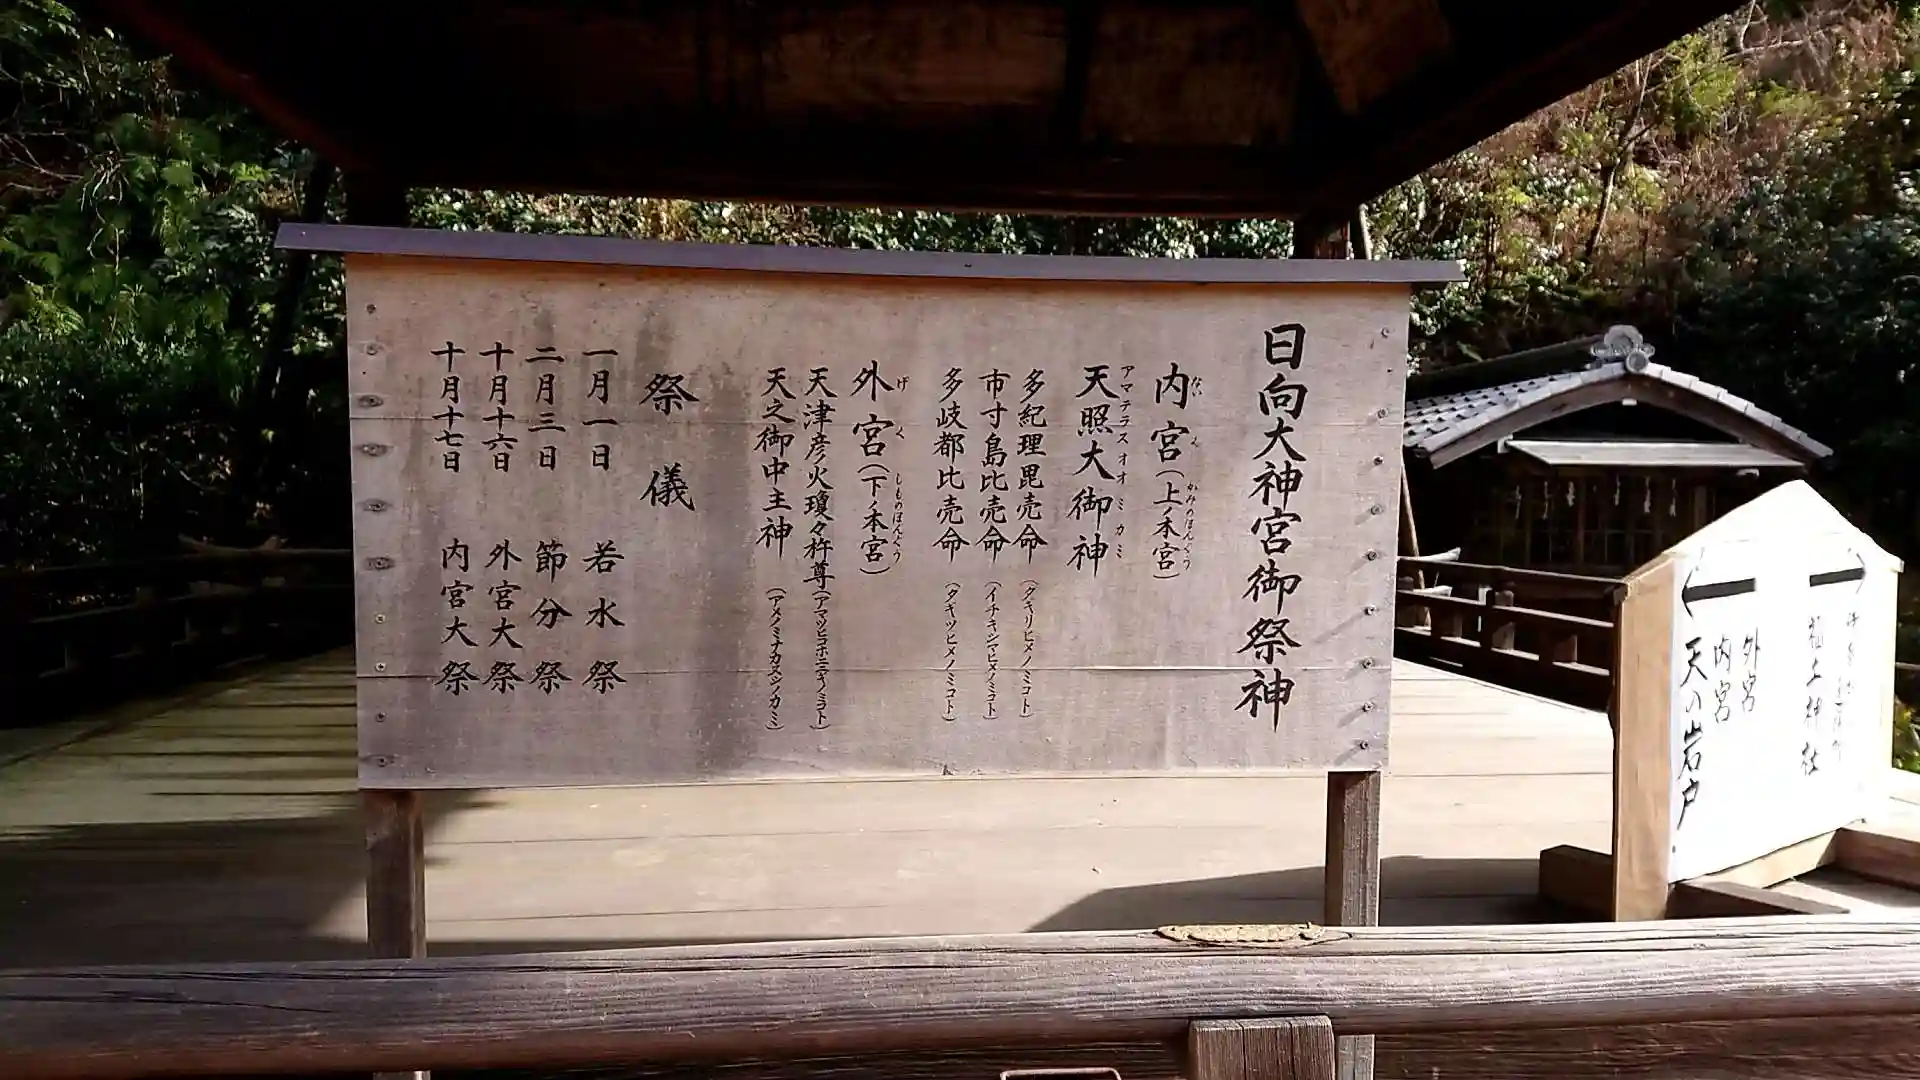 日向大神宮御祭神
内宮(上ノ本宮)
ないくかみのほんぐう
天照大御神
アマテラスオオミカミ
多紀理毘売命(タキリヒメノミコト)
市寸島比売命(イチキシマヒメノミコト)
多岐都比売命(タキツヒメノミコト)
外宮(下ノ本宮)
げくしものほんぐう
天津彦火瓊々杵尊(アマツヒコホニニギノミコト)
天之御中主神(アメノミナカヌシノカミ)
祭儀
一月一日 若水祭
二月三日 節分祭
十月十六日 外宮大祭
十月十七日 内宮大祭
神社
外宮
内宮
天の岩戸